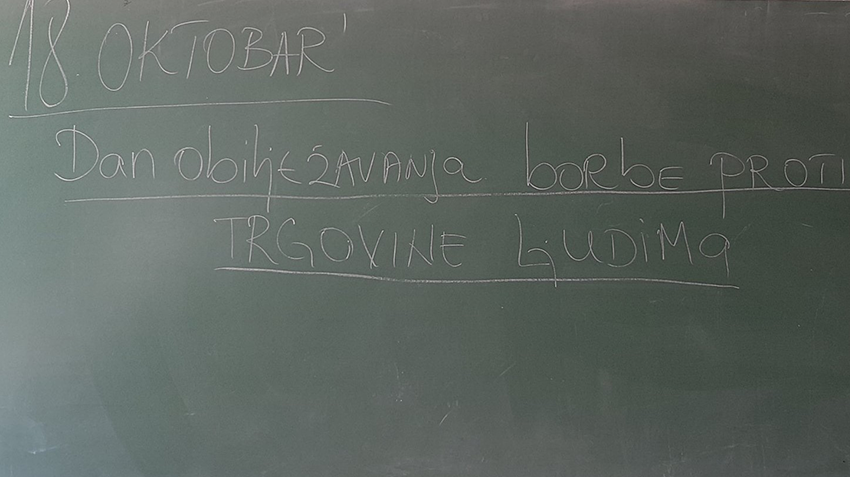 18. OKTOBAR
Dan obilježavanja borbe PROTI
TRGOVINE LjUDIMA